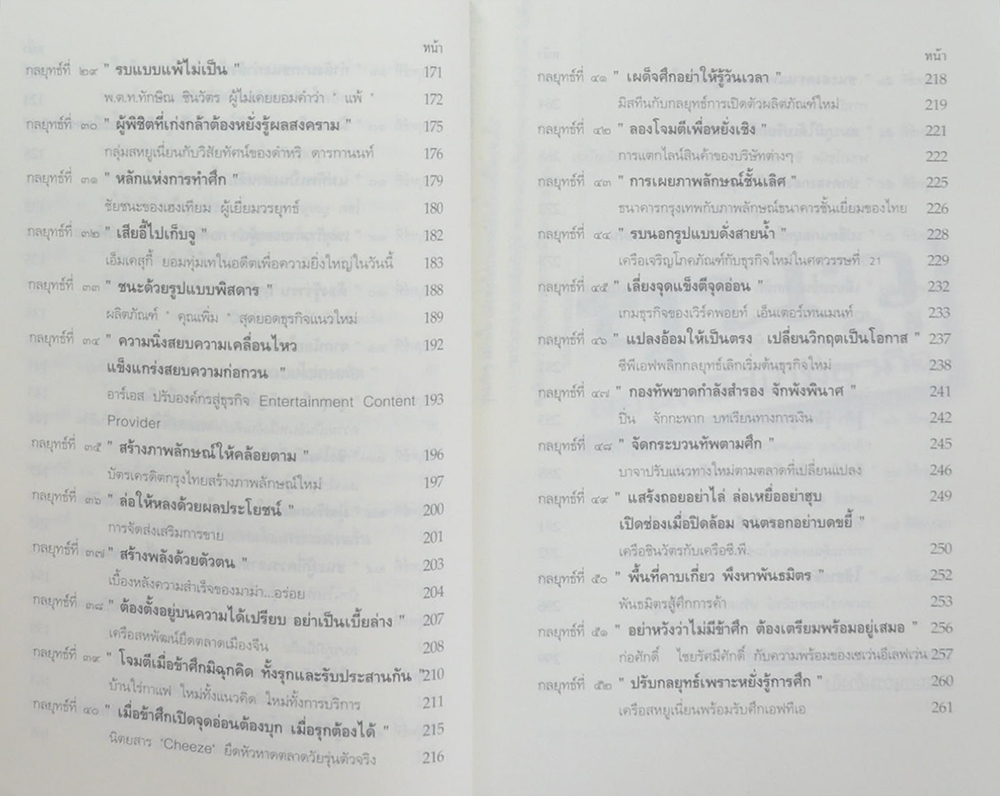 หน้า
กลยุทธ์ที่ ๒๙ " รบแบบแพ้ไม่เป็น " 171
พ.ต.ท.ทักษิณ ชินวัตร ผู้ไม่เคยยอมคำว่า ' แพ้ ' 172
กลยุทธ์ที่ ๓๐ " ผู้พิชิตที่เก่งกล้าต้องหยั่งรู้ผลสงคราม " 175
กลุ่มสหยูเนี่ยนกับวิสัยทัศน์ของดำหริ ดารกานนท์ 176
กลยุทธ์ที่ ๓๑ " หลักแห่งการทำศึก " 179
ชัยชนะของเฮงเทียม ผู้เยี่ยมวรยุทธ์ 180
กลยุทธ์ที่ ๓๒ " เสียอี้ไปเก็บจู " 182
เอ็มเคสุกี้ ยอมทุ่มเทในอดีตเพื่อความยิ่งใหญ่ในวันนี้ 183
กลยุทธ์ที่ ๓๓ " ชนะด้วยรูปแบบพิสดาร " 188
ผลิตภัณฑ์ ' คุณเพิ่ม ' สุดยอดธุรกิจแนวใหม่ 189
กลยุทธ์ที่ ๓๔ " ความนิ่งสยบความเคลื่อนไหว 192
แข็งแกร่งสยบความก่อกวน "
อาร์เอส ปรับองค์กรสู่ธุรกิจ Entertainment Content 193
Provider
กลยุทธ์ที่ ๓๕ " สร้างภาพลักษณ์ให้คล้อยตาม " 196
บัตรเครดิตกรุงไทยสร้างภาพลักษณ์ใหม่ 197
กลยุทธ์ที่ ๓๖ " ล่อให้หลงด้วยผลประโยชน์ " 200
การจัดส่งเสริมการขาย 201
กลยุทธ์ที่ ๓๗ " สร้างพลังด้วยตัวตน " 203
เบื้องหลังความสำเร็จของมาม่า...อร่อย 204
กลยุทธ์ที่ ๓๘ " ต้องตั้งอยู่บนความได้เปรียบ อย่าเป็นเบี้ยล่าง " 207
เครือสหพัฒน์ยึดตลาดเมืองจีน 208
กลยุทธ์ที่ ๓๙ " โจมตีเมื่อข้าศึกมิฉุกคิด ทั้งรุกและรับประสานกัน " 210
บ้านไร่กาแฟ ใหม่ทั้งแนวคิด ใหม่ทั้งการบริการ 211
กลยุทธ์ที่ ๔๐ " เมื่อข้าศึกเปิดจุดอ่อนต้องบุก เมื่อรุกต้องได้ " 215
นิตยสาร 'Cheeze' ยึดหัวหาดตลาดวัยรุ่นตัวจริง 216
หน้า
กลยุทธ์ที่ ๔๑ " เผด็จศึกอย่าให้รู้วันเวลา " 218
มิสทีนกับกลยุทธ์การเปิดตัวผลิตภัณฑ์ใหม่ 219
กลยุทธ์ที่ ๔๒ " ลองโจมตีเพื่อหยั่งเชิง " 221
การแตกไลน์สินค้าของบริษัทต่างๆ 222
กลยุทธ์ที่ ๔๓ " การเผยภาพลักษณ์ชั้นเลิศ " 225
ธนาคารกรุงเทพกับภาพลักษณ์ธนาคารชั้นเยี่ยมของไทย 226
กลยุทธ์ที่ ๔๔ " รบนอกรูปแบบดั่งสายน้ำ " 228
เครือเจริญโภคภัณฑ์กับธุรกิจใหม่ในศตวรรษที่ 21 229
กลยุทธ์ที่ ๔๕ " เลี่ยงจุดแข็งตีจุดอ่อน " 232
เกมธุรกิจของเวิร์คพอยท์ เอ็นเตอร์เทนเมนท์ 233
กลยุทธ์ที่ ๔๖ " แปลงอ้อมให้เป็นตรง เปลี่ยนวิกฤตเป็นโอกาส " 237
ซีพีเอฟพลิกกลยุทธ์เลิกเริ่มต้นธุรกิจใหม่ 238
กลยุทธ์ที่ ๔๗ " กองทัพขาดกำลังสำรอง จักพังพินาศ " 241
ปิ่น จักกะพาก บทเรียนทางการเงิน 242
กลยุทธ์ที่ ๔๘ " จัดกระบวนทัพตามศึก " 245
บาจาปรับแนวทางใหม่ตามตลาดที่เปลี่ยนแปลง 246
กลยุทธ์ที่ ๔๙ " แสร้งถอยอย่าไล่ ล่อเหยื่ออย่าฮุบ 249
เปิดช่องเมื่อปิดล้อม จนตรอกอย่าบดขยี้ "
เครือชินวัตรกับเครือซี.พี. 250
กลยุทธ์ที่ ๕๐ " พื้นที่คาบเกี่ยว พึงหาพันธมิตร " 252
พันธมิตรสู้ศึกการค้า 253
กลยุทธ์ที่ ๕๑ " อย่าหวังว่าไม่มีข้าศึก ต้องเตรียมพร้อมอยู่เสมอ " 256
ก่อศักดิ์ ไชยรัศมีศักดิ์ กับความพร้อมของเซเว่นอีเลฟเว่น 257
กลยุทธ์ที่ ๕๒ " ปรับกลยุทธ์เพราะหยั่งรู้การศึก " 260
เครือสหยูเนี่ยนพร้อมรับศึกเอฟทีเอ 261